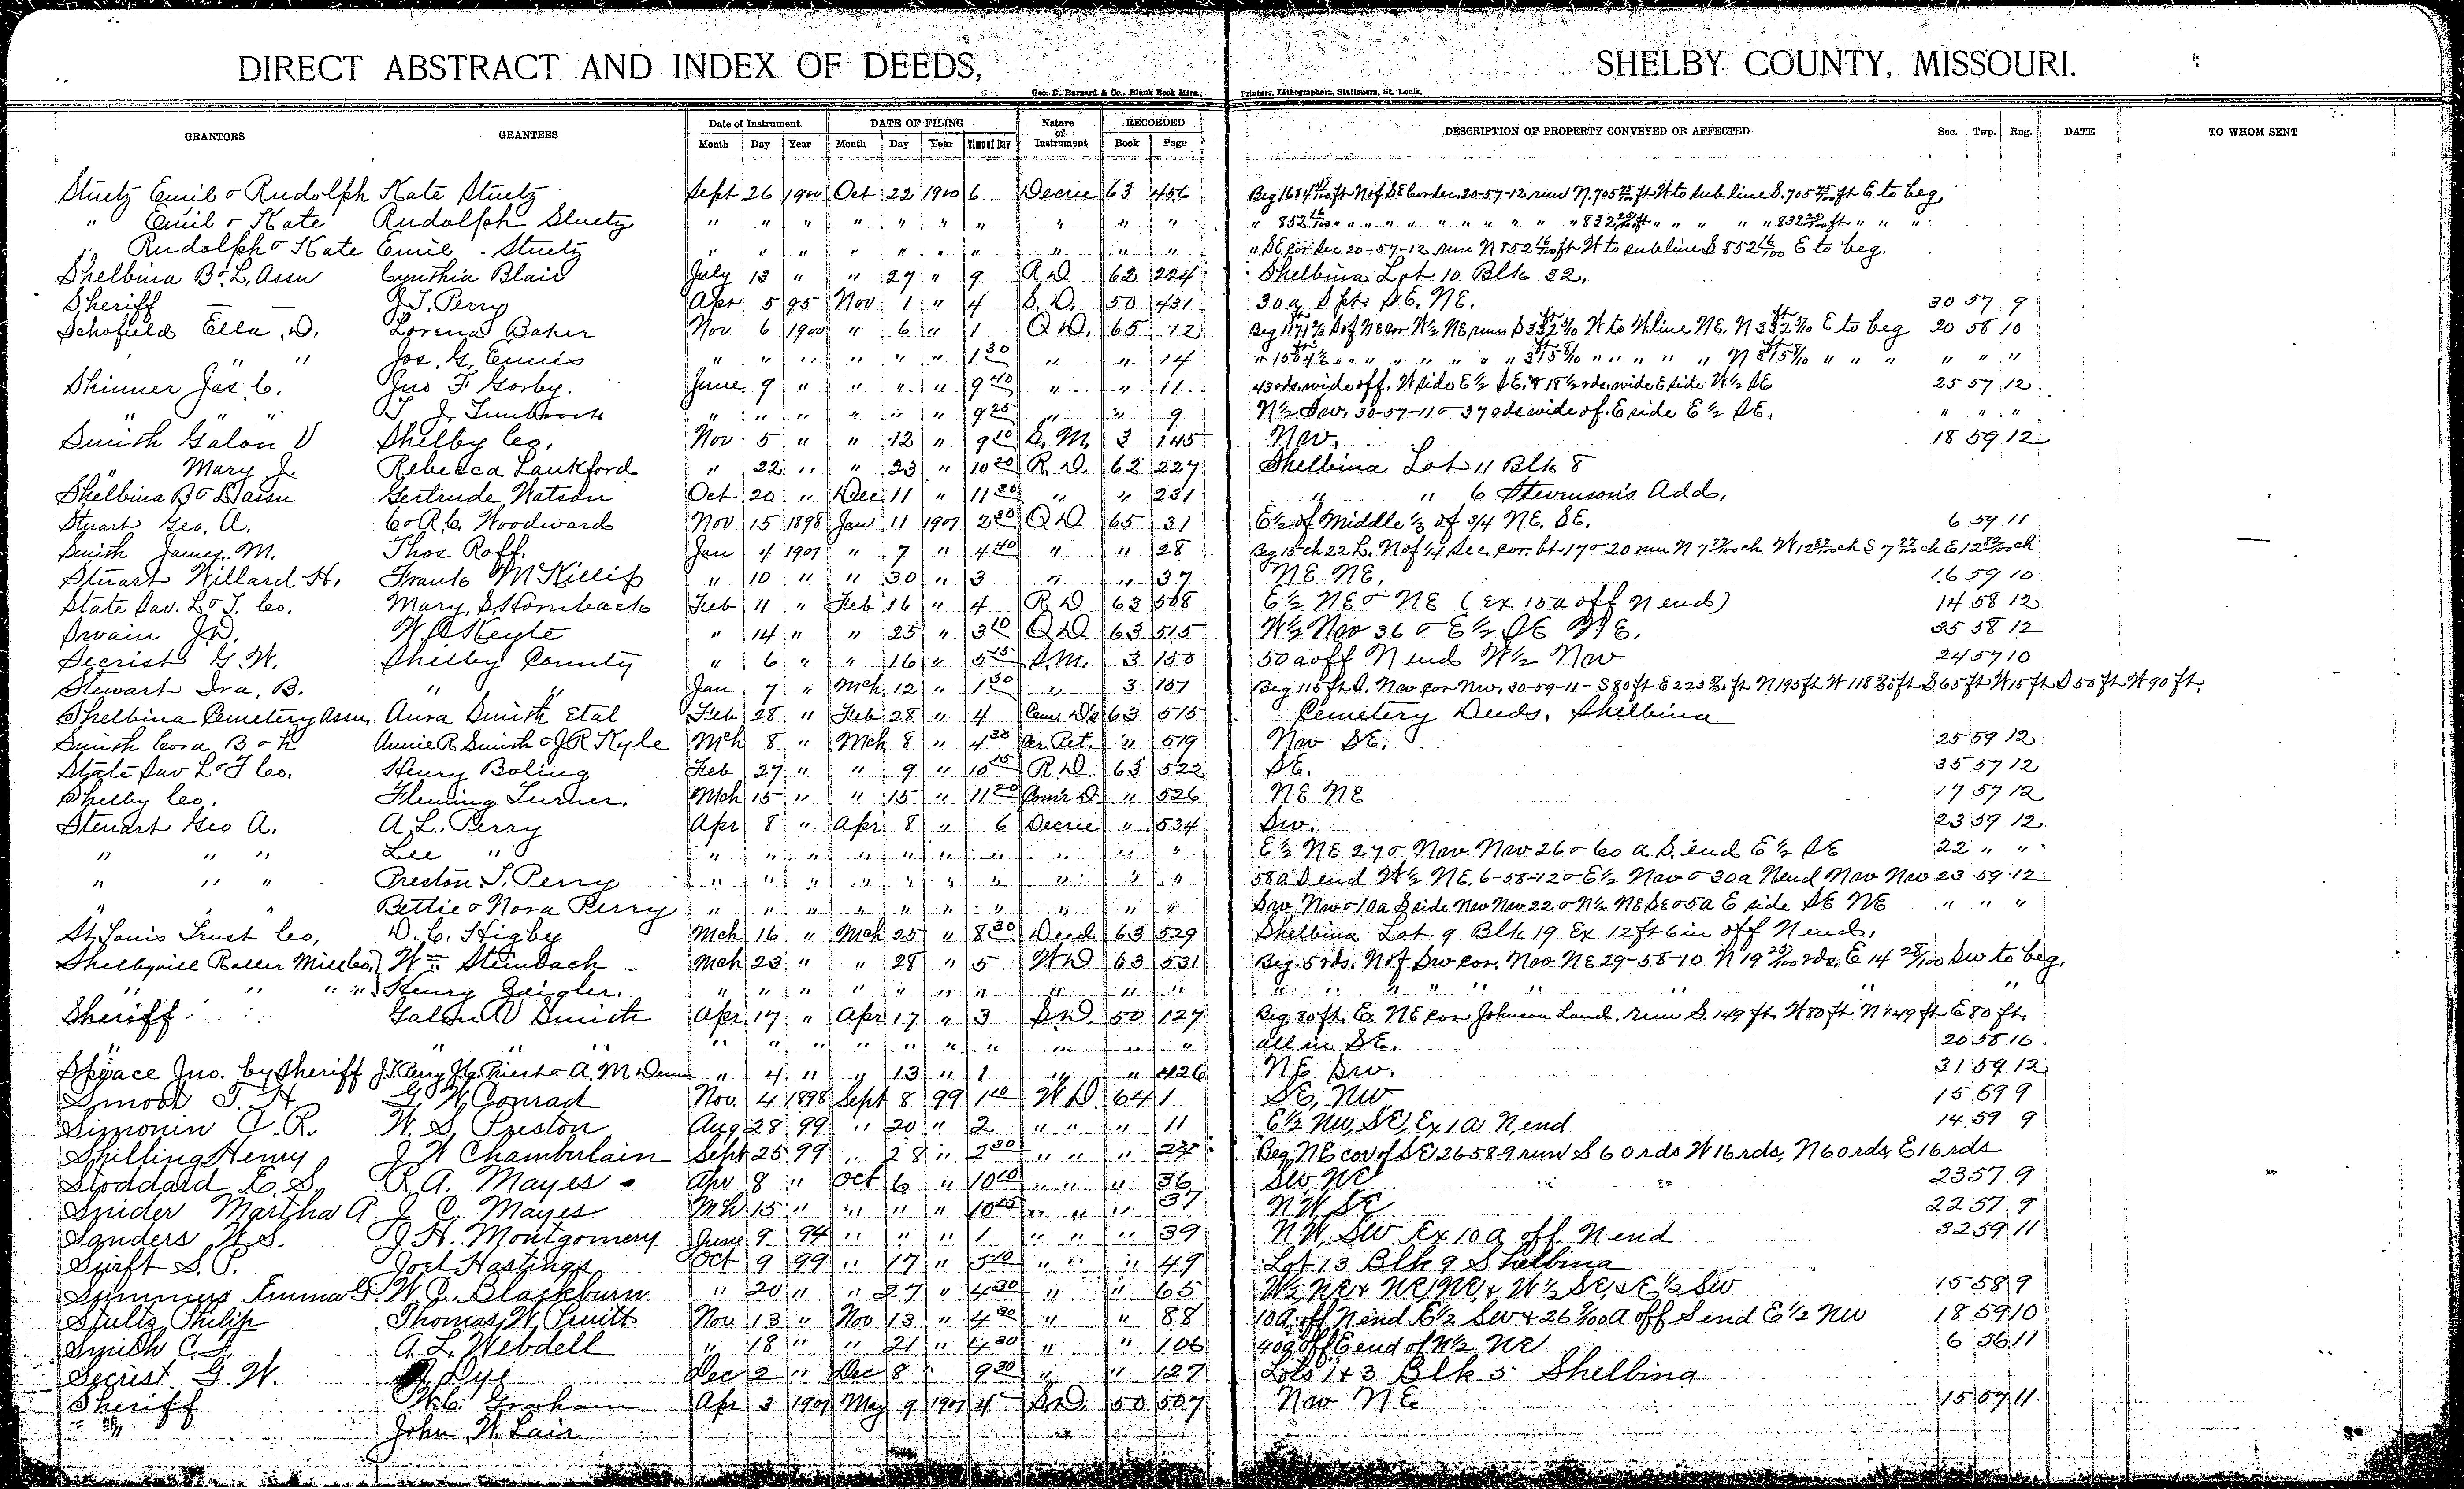 DIRECT ABSTRACT AND INDEX OF DEEDS, SHELBY COUNTY, MISSOURI.
Geo. D. Barnard & Co., Blank Book Mfrs., Printers, Lithographers, Stationers, St. Louis.
GRANTORS GRANTEES Date of Instrument DATE OF FILING Nature of Instrument RECORDED DESCRIPTION OF PROPERTY CONVEYED OR AFFECTED Sec. Twp. Rng. DATE TO WHOM SENT
Month Day Year Month Day Year Time of Day Book Page
Stuetz Emil & Rudolph Kate Stuetz Sept 26 1900 Oct 22 1900 6 Decree 63 456 Beg 1684 ft N of SE Cor Sec. 20-57-12 run N. 705 ft W to sub line S. 705 ft E to beg.
" Emil & Kate Rudolph Stuetz " " " " " " " " " " " 852 16/100 " " " " " " " " 832 ft " " " " " 832 ft " " "
" Rudolph & Kate Emil Stuetz " " " " " " " " " " " SE cor Sec 20-57-12 run N 852 16/100 ft W to sub line S 852 16/100 E to beg.
Shelbina B & L Assn Cynthia Blair July 13 " " 27 " 9 R D 62 224 Shelbina Lot 10 Blk 32.
Sheriff J. T. Perry Apr 5 95 Nov 1 " 4 S. D. 50 431 30 a S pt. SE. NE. 30 57 9
Schofield Ella D. Lorena Baker Nov 6 1900 " 6 " 1 Q D. 65 12 Beg 1171 S of NE cor W½ NE run S W to W line NE. N E to beg 20 58 10
" " Jos. G. Ennis " " " " " " 1 30 " " 14 " 1504½ " " " " " " " " " " " " N " " " " " "
Skinner Jas. C. Jno F Gorby. June 9 " " " " 9 40 " " 11 43 rds. wide off. W side E½ SE. & 18½ rds. wide E side W½ SE 25 57 12
" " " T. J. Timbrook " " " " " " 9 25 " " 9 N½ Sw. 30-57-11 & 37 rds wide of. E side E½ SE. " " "
Smith Galon V Shelby Co. Nov 5 " " 12 " 9 10 S. M. 3 145 Nw. 18 59 12
" Mary J. Rebecca Lankford " 22 " " 23 " 10 20 R. D. 62 227 Shelbina Lot 11 Blk 8
Shelbina B & L assn Gertrude Watson Oct 20 " Dec 11 " 11 20 " " 231 " " 6 Stevenson's Add.
Stuart Geo. A. C & R. C. Woodward Nov 15 1898 Jan 11 1901 2 30 Q D 65 31 E½ of Middle ⅓ of 3/4 NE. SE. 6 59 11
Smith James M. Thos Roff. Jan 4 1901 " 7 " 4 40 " " 28 Beg 15 ch 22 L. N of ¼ Sec. cor. bt 17 & 20 run N 7 ch W 12 ch S 7 ch E 12 ch
Stuart Willard H. Frank McKillip " 10 " " 30 " 3 " " 37 NE. NE. 16 59 10
State Sav. L & T. Co. Mary S. Hornback Feb 11 " Feb 16 " 4 R D 63 508 E½ NE & NE (ex 15 a off N end) 14 58 12
Swain J W. W. A Keyte " 14 " " 25 " 3 10 Q D 63 515 W½ Nw 36 & E½ SE NE. 35 58 12
Secrist G. W. Shelby County " 6 " " 16 " 5 15 S. M. 3 150 50 a off N end W½ Nw 24 57 10
Stewart Ira, B. " " Jan 7 " Mch 12 " 1 30 " 3 157 Beg 115 ft S. Nw cor Nw. 20-59-11 - S 80 ft E 223 ft N 195 ft W 118 ft S 65 ft W 15 ft S 50 ft W 90 ft.
Shelbina Cemetery Assn, Aura Smith Etal Feb 28 " Feb 28 " 4 Cem. Ds 63 515 Cemetery Deeds, Shelbina
Smith Cora B & R Annie R Smith & J R Kyle Mch 8 " Mch 8 " 4 30 Par Pet. " 519 Nw SE. 25 59 12
State Sav L & T Co. Henry Boling Feb 27 " " 9 " 10 15 R. D 63 522 SE. 35 57 12
Shelby Co. Fleming Turner. Mch 15 " " 15 " 11 20 Com'r D. " 526 NE NE 17 57 12
Stewart Geo A. A. L. Perry Apr 8 " Apr 8 " 6 Decree " 534 Sw. 23 59 12
" " " Lee " " " " " " " " " " " E½ NE 27 & Nw Nw 26 & 60 a S. end E½ SE 22 " "
" " " Preston T. Perry " " " " " " " " " " 58 a S end W½ NE. 6-58-12 & E½ Nw & 30 a N end Nw Nw 23 59 12
" " Bettie & Nora Perry " " " " " " " " " " Sw Nw & 10 a S side Nw Nw 22 & N½ NE SE & 5 a E side SE NE " " "
St. Louis Trust Co, D. C. Higby Mch 16 " Mch 25 " 8 30 Deed 63 529 Shelbina Lot 9 Blk 19 Ex 12 ft 6 in off N end.
Shelbyvill Roller Mill Co. Wm Steinbach Mch 23 " " 28 " 5 W D 63 531 Beg. 5 rds. N of Sw cor. Nw NE 29-58-10 N 19 25/100 rds. E 14 28/100 Sw to beg.
" " " " Henry Zeigler. " " " " " " " " " " " " " " " " " "
Sheriff Galon V Smith Apr. 17 " Apr 17 " 3 S. D. 50 127 Beg 80 ft. E. NE cor Johnson Land. run S. 149 ft. W 80 ft N 149 ft E 80 ft.
" " " " " " " " " " " " " " all in SE. 20 58 10
Space Jno. by Sheriff J. T. Perry J. C. Priest & A. M. " 4 " " 13 " 1 " " 426 NE Sw. 31 59 12
Smoot T. H. G. W. Conrad Nov. 4 1898 Sept 8 99 1 10 W D. 64 1 SE, NW 15 59 9
Simonin C. R. W. S. Preston Aug 28 99 " 20 " 2 " " " 11 E½ NW, SE, Ex 1 a N. end 14 59 9
Shilling Henry J W Chamberlain Sept 25 99 " 28 " 2 30 " " " 22 Beg NE cor of SE 26-58-9 run S 60 rds W 16 rds, N 60 rds, E 16 rds
Stoddard E. S. R. A. Mayes Apr 8 " Oct 6 " 10 10 " " " 36 SW NE 23 57 9
Snider Martha A J. C. Mayes Mch 15 " " " " 10 25 " " " 37 NW SE 22 57 9
Sanders W. S. J. H. Montgomery June 9 94 " " " 1 " " " 39 NW, SW Ex 10 a off N end 32 59 11
Swift S. P. Joel Hastings Oct 9 99 " 17 " 5 10 " " " 49 Lot 13 Blk 9 Shelbina
Summers Emma W. C. Blackburn " 20 " " 27 " 4 30 " " 65 W½ NE & NE, NE, & W½ SE, & E½ SW 15 58 9
Stultz Philip Thomas W. Pruitt Nov 13 " Nov 13 " 4 30 " " 88 10 a. off N end E½ SW & 26 a off S end E½ NW 18 59 10
Smith C. A. L. Webdell " 18 " " 21 " 4 30 " " 106 40 a off E end of N½ NE 6 56 11
Secrist G. W. Dye Dec 2 " Dec 8 " 9 30 " " 127 Lots 1 & 3 Blk 5 Shelbina
Sheriff W. C. Graham Apr 3 1901 May 9 1901 4 S. D 50 507 Nw NE 15 57 11
" John W. Lair